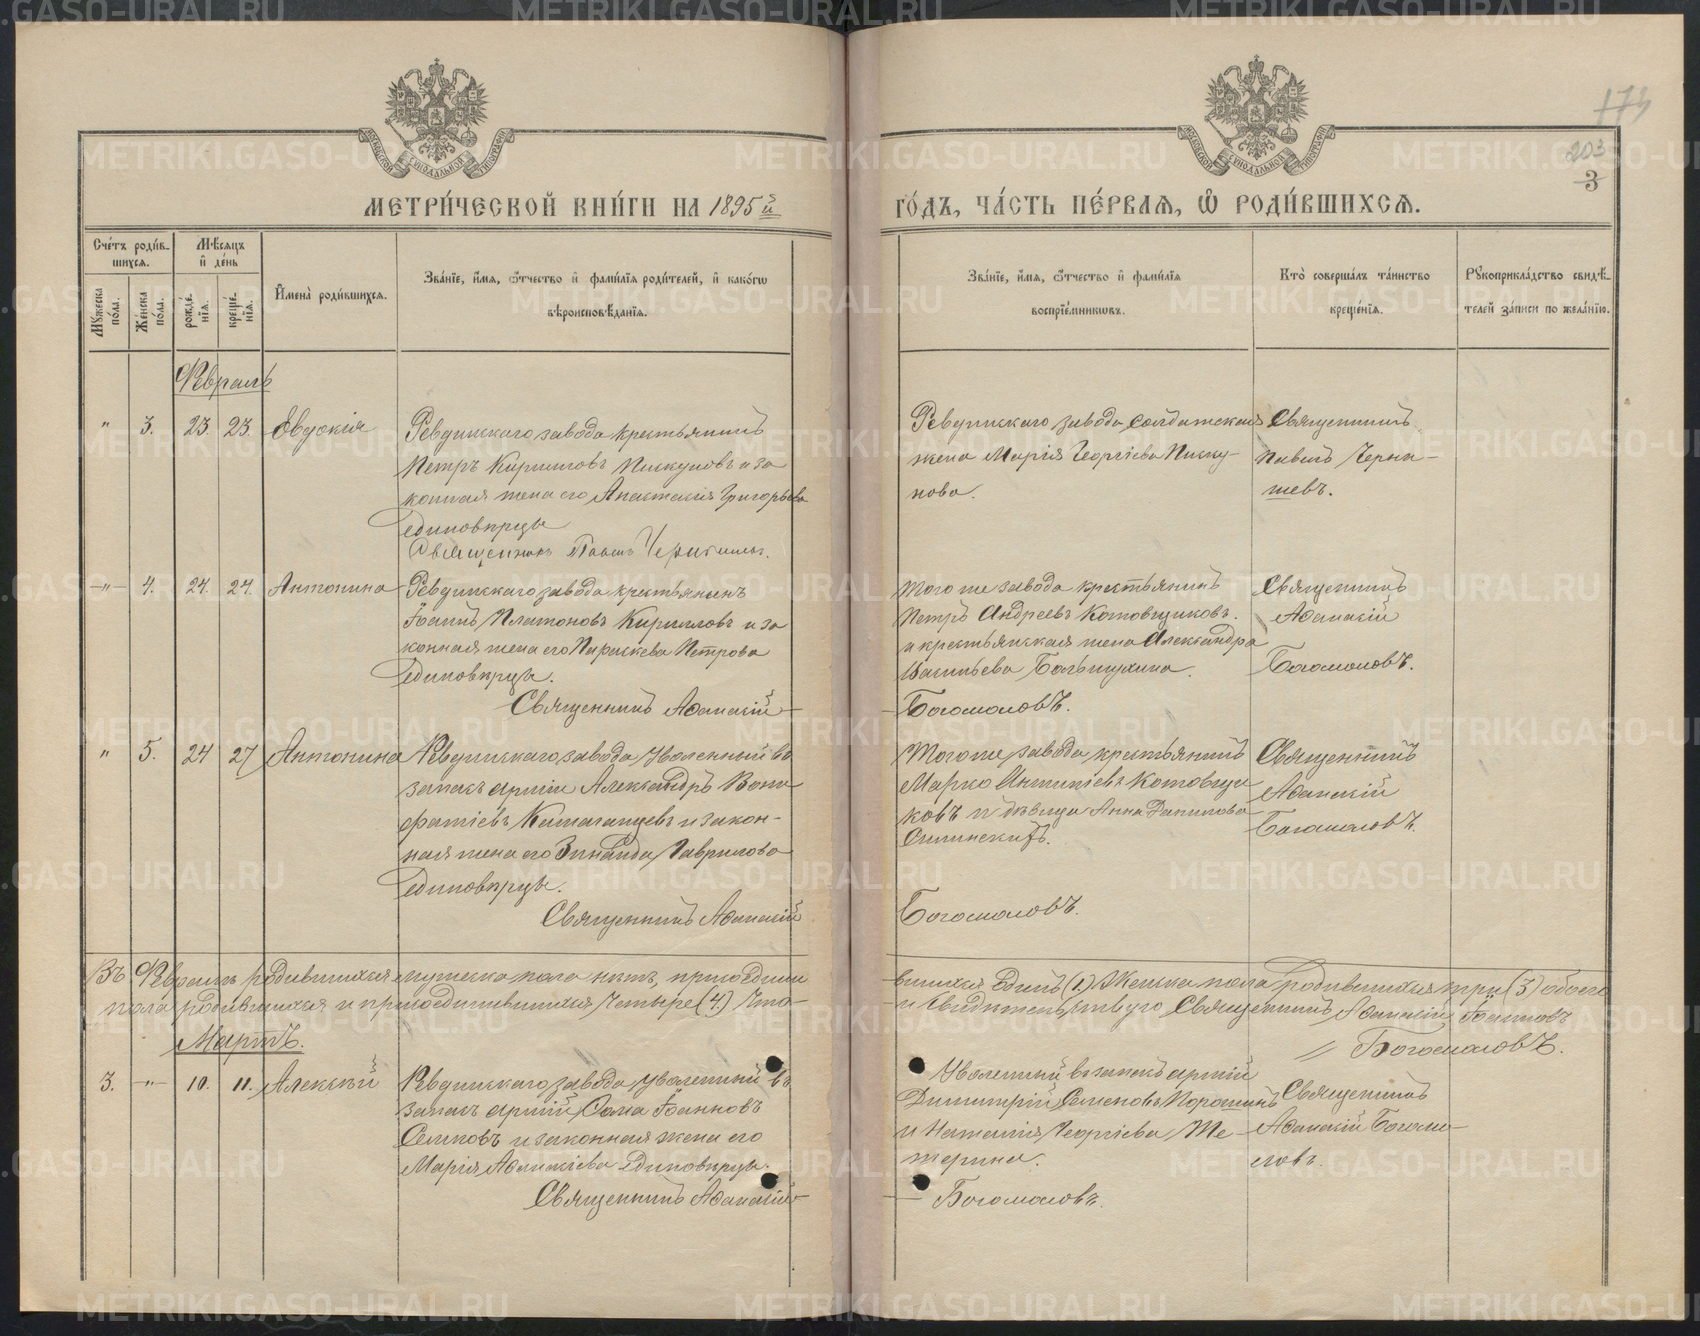 173
203
3
МЕТРИ́ЧЕСКОЙ КНИ́ГИ НА 1895й
ГО́ДЪ, ЧА́СТЬ ПЕ́РВАЯ, Ѡ РОДИ́ВШИХСЯ.
Сче́тъ роди́в-
шихся.
Мѣ́сяцъ
и де́нь
Мꙋ́жеска по́ла.
Же́нска по́ла.
рожде́нїя.
креще́нїя.
И҆мена̀ роди́вшихся.
Зва́нїе, и҆́мя, ѻ҆́тчество и҆ фами́лїя роди́телей, и҆ како́гѡ
вѣроисповѣ́данїя.
Зва́нїе, и҆́мя, ѻ҆́тчество и҆ фами́лїя
воспрїе́мникѡвъ.
Кто̀ соверша́лъ та́инство
креще́нїя.
Рꙋкоприкла́дство свидѣ́-
телей за́писи по жела́нїю.
Февраль
" 3. 23. 23. Евдокія
Ревдинскаго завода крестьянинъ
Петръ Кирилловъ Пискуновъ и за
конная жена его Анастасія Григорьева
единовѣрцы
Священникъ Павелъ Чернышевъ.
Ревдинскаго завода солдатская
жена Марія Георгіева Писку-
нова.
Священникъ
Павелъ Черны-
шевъ.
-"- 4. 24. 24. Антонина
Ревдинскаго завода крестьянинъ
Іоаннъ Платоновъ Кирилловъ и за
конная жена его Параскева Петрова
единовѣрцы.
Священникъ Аѳанасій
Того же завода крестьянинъ
Петръ Андреевъ Котовщиковъ.
и крестьянская жена Александра
Васильева Балышухина.
Богомоловъ.
Священникъ
Аѳанасій
Богомоловъ.
" 5. 24 27 Антонина
Ревдинскаго завода уволенный въ
запасъ арміи Александръ Вони
фатіевъ Каталанцевъ и закон-
ная жена его Зинаида Гаврилова
единовѣрцы.
Священникъ Аѳанасій
Того же завода крестьянинъ
Марко Антипіевъ Котовщи
ковъ и дѣвица Анна Данилова
Силинскихъ.
Богомоловъ.
Священникъ
Аѳанасій
Богомоловъ.
Въ Февралѣ родившихся мужеска пола нѣтъ, присоедини
вшихся Единъ (1.) Женска пола родившихся три (3) обоего
пола родившихся и присоединившихся Четыре (4) Что-
и свидѣтельствую Священникъ Аѳанасій Іоанновъ
Богомоловъ.
Мартъ.
3. -"- 10. 11. Алексѣй
Ревдинскаго завода уволенный въ
запасъ арміи Сома Іоанновъ
Селковъ и законная жена его
Марія Аѳанасіева единовѣрцы.
Священникъ Аѳанасій
Уволенный въ запасъ арміи
Димитрій Семеновъ Порошинъ
и Наталія Георгіева Ме-
терина.
Богомоловъ.
Священникъ
Аѳанасій Богомо-
ловъ.